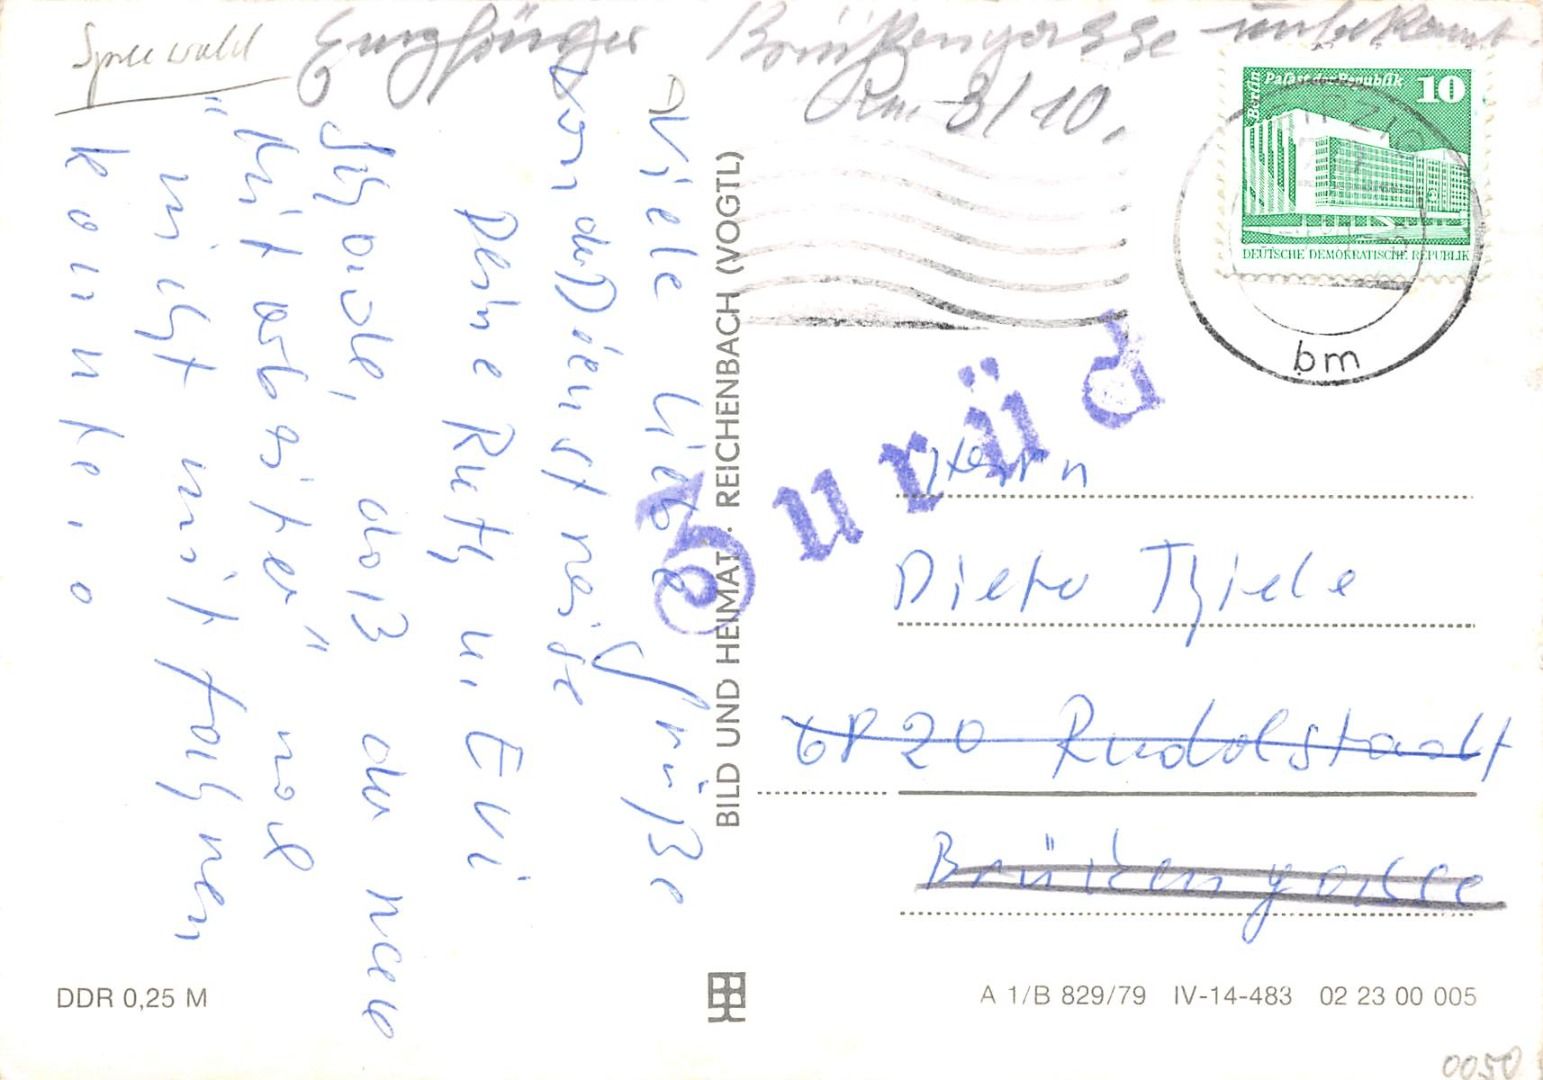 Spreewald
Empfänger Brückengasse unbekannt.
Rm. 3/10.
Berlin Palast der Republik 10
DEUTSCHE DEMOKRATISCHE REPUBLIK
bm
Viele liebe Grüße
von der Dienstreise
Deine Ruth u. Evi
Schade, daß du neee
"Mitarbeiter" noch
nicht mitfahren
konnte..
BILD UND HEIMAT · REICHENBACH (VOGTL)
Zurück
Herrn
Dieter Thiele
6820 Rudolstadt
Brückengasse
DDR 0,25 M
A 1/B 829/79 IV-14-483 02 23 00 005
0050